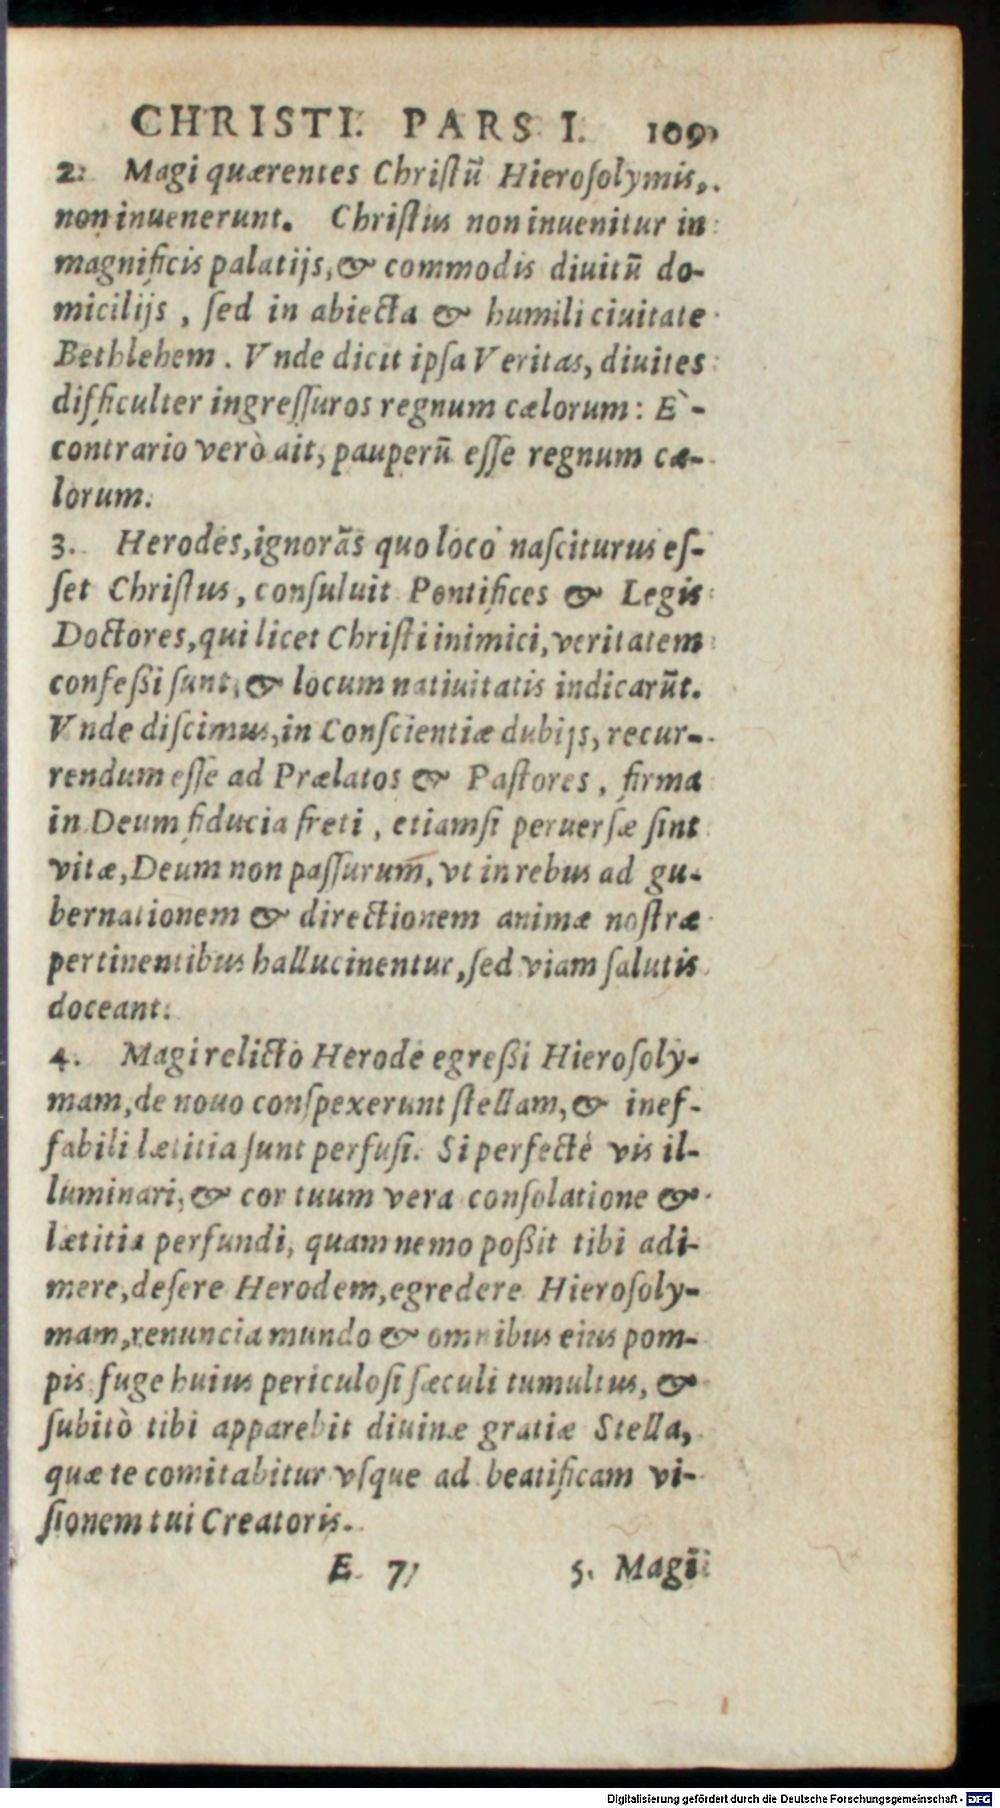 CHRISTI. PARS I. 109
2. Magi quærentes Christũ Hierosolymis,
non inuenerunt. Christus non inuenitur in
magnificis palatijs, & commodis diuitũ do-
micilijs, sed in abiecta & humili ciuitate
Bethlehem. Vnde dicit ipsa Veritas, diuites
difficulter ingressuros regnum cælorum: E`-
contrario verò ait, pauperũ esse regnum cæ-
lorum.
3. Herodes, ignorãs quo loco nasciturus es-
set Christus, consuluit Pontifices & Legis
Doctores, qui licet Christi inimici, veritatem
confeßi sunt, & locum natiuitatis indicarũt.
Vnde discimus, in Conscientiæ dubijs, recur-
rendum esse ad Prælatos & Pastores, firma
in Deum fiducia freti, etiamsi peruersæ sint
vitæ, Deum non passurum, vt in rebus ad gu-
bernationem & directionem animæ nostræ
pertinentibus hallucinentur, sed viam salutis
doceant.
4. Magi relicto Herode egreßi Hierosoly-
mam, de nouo conspexerunt stellam, & inef-
fabili lætitia sunt perfusi. Si perfectè vis il-
luminari, & cor tuum vera consolatione &
lætitia perfundi, quam nemo poßit tibi adi-
mere, desere Herodem, egredere Hierosoly-
mam, renuncia mundo & omnibus eius pom-
pis fuge huius periculosi sæculi tumultus, &
subitò tibi apparebit diuinæ gratiæ Stella,
quæ te comitabitur vsque ad beatificam vi-
sionem tui Creatoris.
E 7 5. Magi
Digitalisierung gefördert durch die Deutsche Forschungsgemeinschaft - DFG